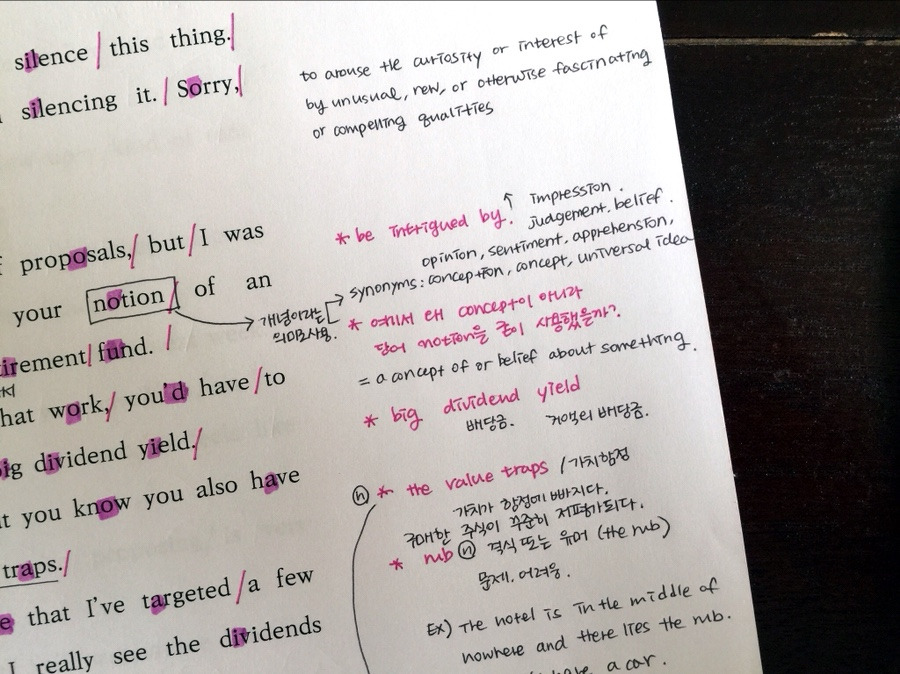 silence / this thing. /
silencing it. / Sorry, /
to arouse the curiosity or interest of
by unusual, new, or otherwise fascinating
or compelling qualities
proposals, / but / I was
your notion / of an
irement / fund. /
hat work, / you'd have / to
ig dividend yield. /
t you know you also have
traps. /
e that I've targeted / a few
I really see the dividends
* be intrigued by.
↑ impression.
judgement. belief.
opinion, sentiment, apprehension,
synonyms: conception, concept, universal idea
개념이라는
의미로 사용.
* 여기서 왜 concept이 아니라
단어 notion을 굳이 사용했을까?
= a concept of or belief about something.
* big dividend yield
배당금. 거액의 배당금.
ⓝ * the value traps / 가치함정
가치가 함정에 빠지다.
구매한 주식이 꾸준히 저평가되다.
* rub ⓝ 격식 또는 유머 (the rub)
문제, 어려움.
Ex) The hotel is in the middle of
nowhere and there lies the rub.
a car.